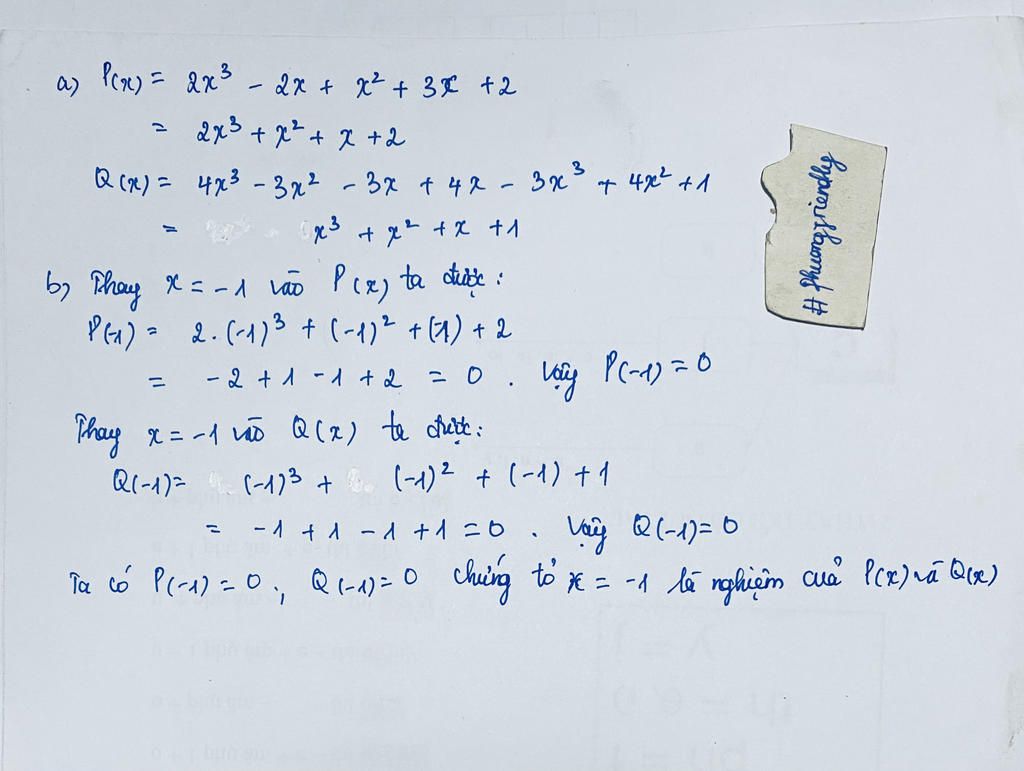 a) P(x) = 2x³ - 2x + x² + 3x + 2
= 2x³ + x² + x + 2
Q(x) = 4x³ - 3x² - 3x + 4x - 3x³ + 4x² + 1
= x³ + x² + x + 1
b) Thay x = -1 vào P(x) ta được:
P(-1) = 2.(-1)³ + (-1)² + (-1) + 2
= -2 + 1 - 1 + 2 = 0. Vậy P(-1) = 0
Thay x = -1 vào Q(x) ta được:
Q(-1) = (-1)³ + (-1)² + (-1) + 1
= -1 + 1 - 1 + 1 = 0. Vậy Q(-1) = 0
Ta có P(-1) = 0; Q(-1) = 0 chứng tỏ x = -1 là nghiệm của P(x) và Q(x)
# phuongfriendly